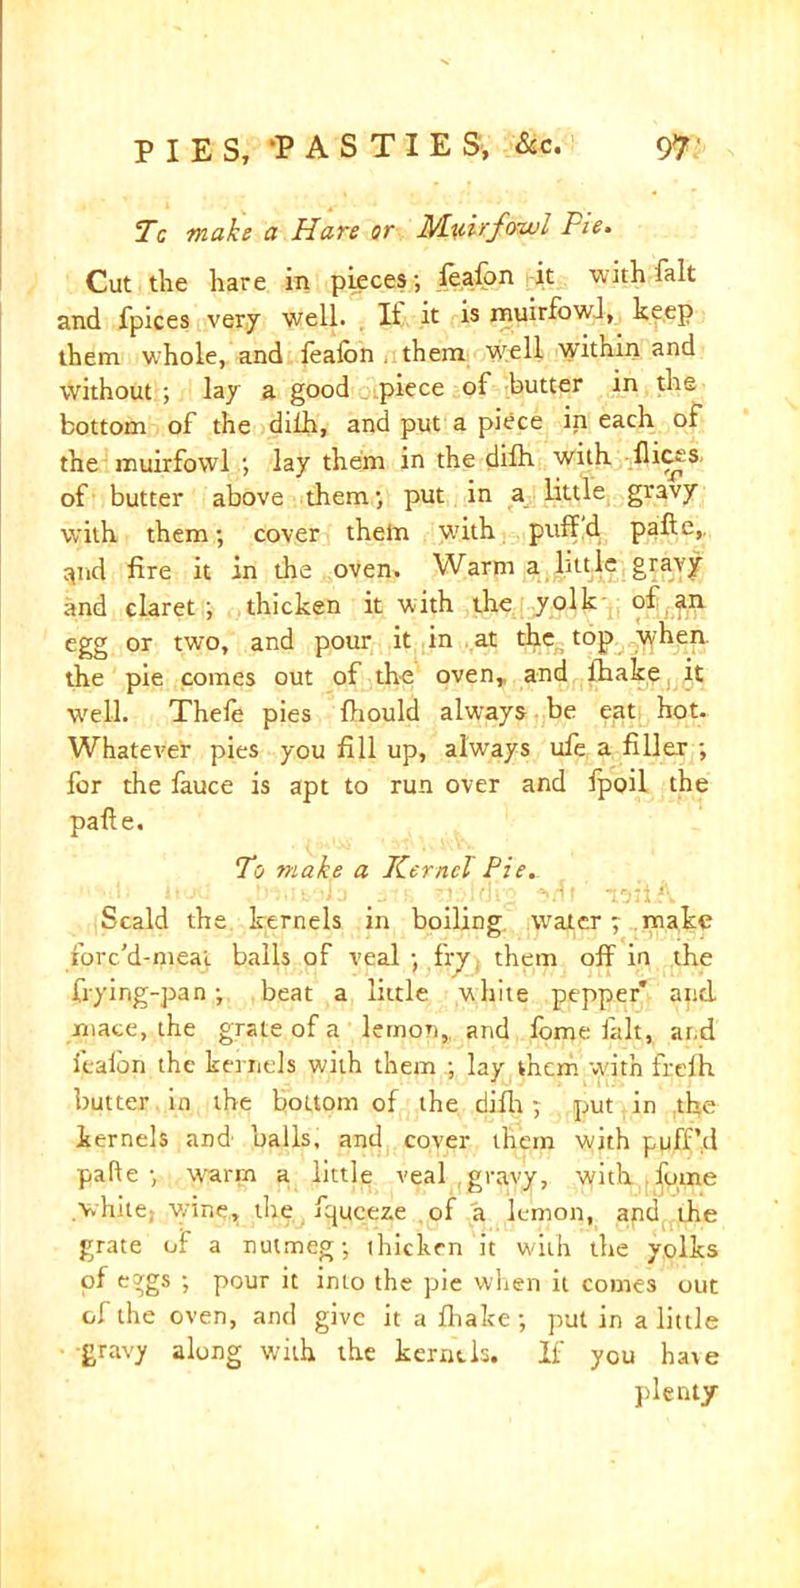 PIES, PASTIES, &c. 97
To make a Hare or Muirfowl Pie.
Cut the hare in pieces; ſeaſon it with ſalt
and ſpices very well. If it is muirfowl, keep
them whole, and ſeaſon them well within and
without; lay a good piece of butter in the
bottom of the diſh, and put a piece in each of
the muirfowl; lay them in the diſh with ſlices
of butter above them; put in a little gravy
with them; cover them with puff'd paſte,
and fire it in the oven. Warm a little gravy
and claret; thicken it with the yolk of an
egg or two, and pour it in at the top when
the pie comes out of the oven, and ſhake it
well. Theſe pies ſhould always be eat hot.
Whatever pies you fill up, always uſe a filler;
for the ſauce is apt to run over and ſpoil the
paſte.
To make a Kernel Pie.
Scald the kernels in boiling water; make
forc'd-meat balls of veal; fry them off in the
frying-pan; beat a little white pepper and
mace, the grate of a lemon, and ſome ſalt, and
ſeaſon the kernels with them; lay them with freſh
butter in the bottom of the diſh; put in the
kernels and balls, and cover them with puff'd
paſte; warm a little veal gravy, with ſome
white wine, the ſqueeze of a lemon, and the
grate of a nutmeg; thicken it with the yolks
of eggs; pour it into the pie when it comes out
of the oven, and give it a ſhake; put in a little
gravy along with the kernels. If you have
plenty